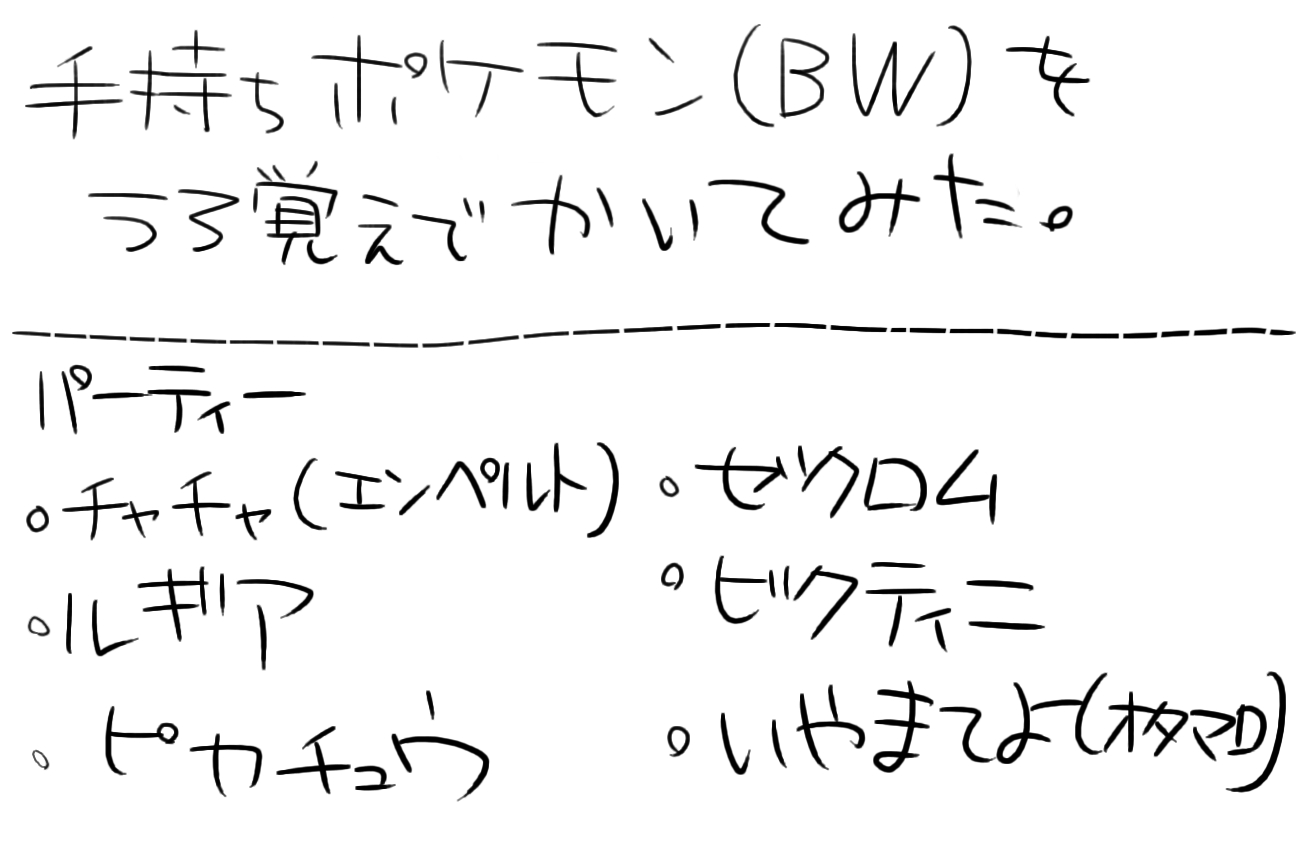 手持ちポケモン(BW)を
うろ覚えでかいてみた。
パーティー
・チャチャ(エンペルト)
・ルギア
・ピカチュウ
・ゼクロム
・ビクティニ
・いやまてよ(オタマロ)